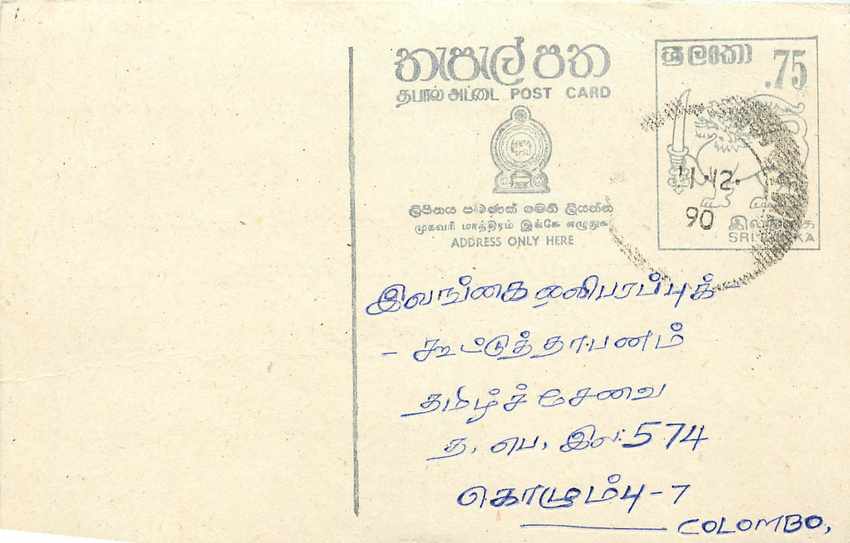 තැපැල් පත
தபால் அட்டை POST CARD
ලිපිනය පමණක් මෙහි ලියන්න
முகவரி மாத்திரம் இங்கே எழுதுக
ADDRESS ONLY HERE
ශ්‍රී ලංකා
.75
11.12.
90
இலங்கை
SRI LANKA
இலங்கை ஒலிபரப்புக்
- கூட்டுத்தாபனம்
தமிழ்ச் சேவை
த. பெ. இல: 574
கொழும்பு - 7
COLOMBO,